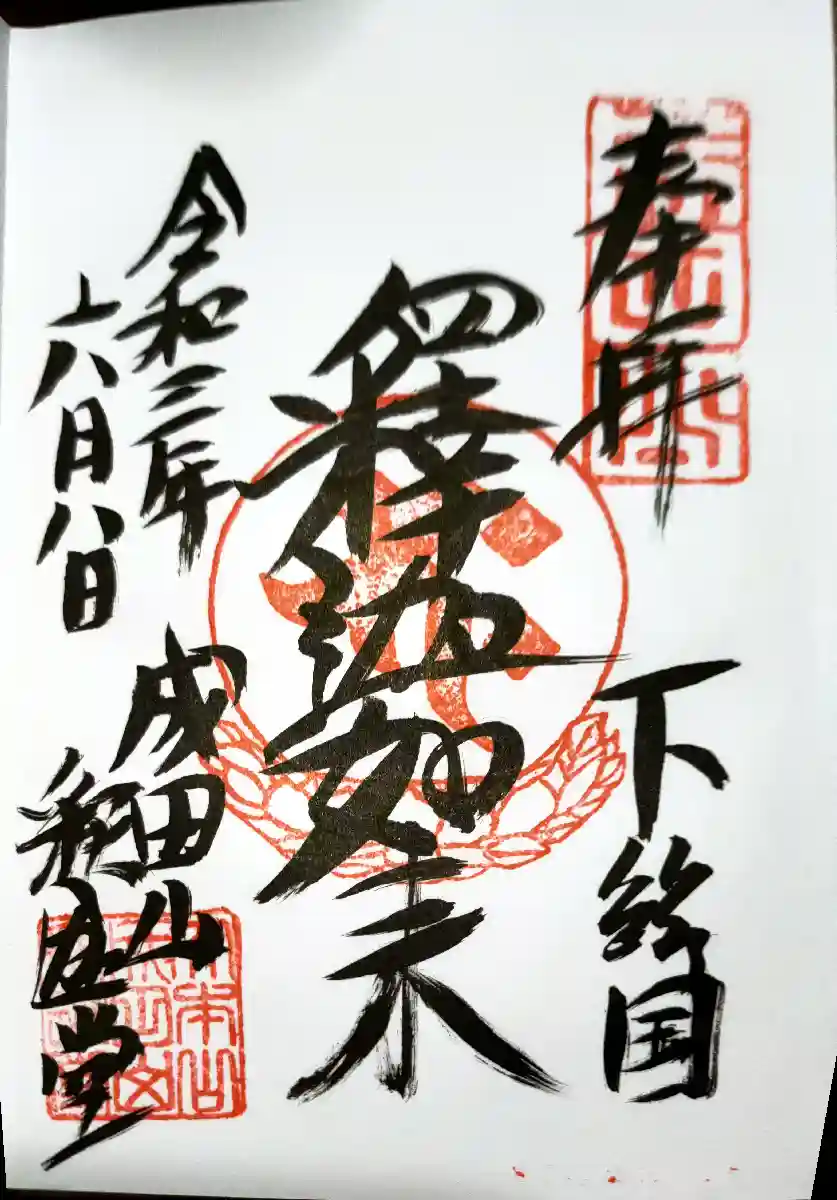 奉拝
下総国
釋迦如来
令和三年
六月八日
成田山
釈迦堂